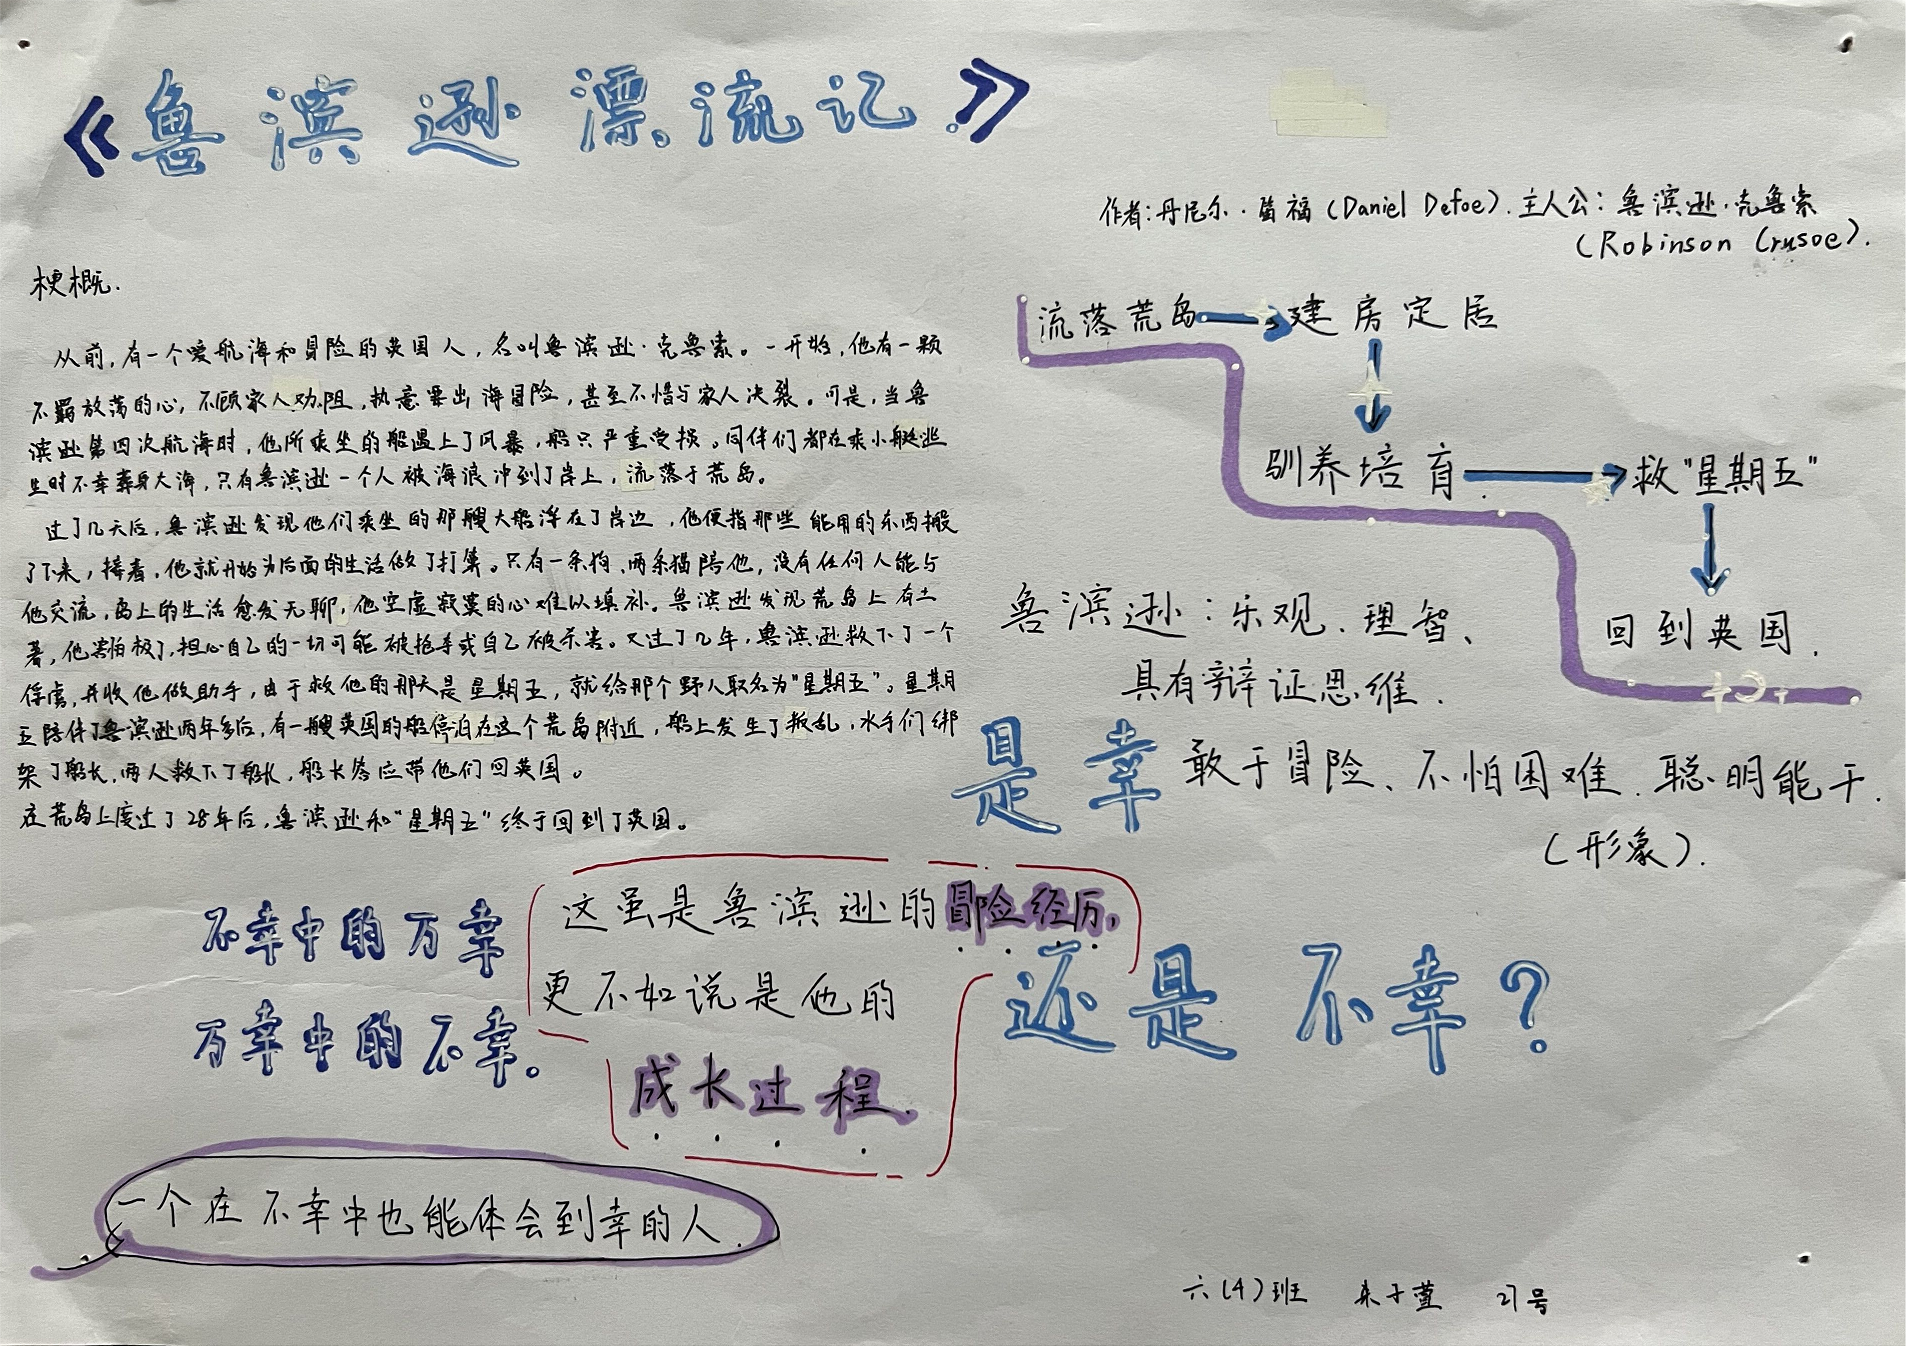 《鲁滨逊漂流记》
作者:丹尼尔·笛福(Daniel Defoe).主人公:鲁滨逊·克鲁索
(Robinson Crusoe).
梗概.
从前,有一个爱航海和冒险的英国人,名叫鲁滨逊·克鲁索。一开始,他有一颗
不羁放荡的心,不顾家人劝阻,执意要出海冒险,甚至不惜与家人决裂。可是,当鲁
滨逊第四次航海时,他所乘坐的船遇上了风暴,船只严重受损。同伴们都在乘小艇逃
生时不幸葬身大海,只有鲁滨逊一个人被海浪冲到了岸上,流落于荒岛。
过了几天后,鲁滨逊发现他们乘坐的那艘大船浮在了岸边,他便指那些能用的东西搬
了下来,接着,他就开始为后面的生活做了打算。只有一条狗、两条猫陪他,没有任何人能与
他交流,岛上的生活愈发无聊,他空虚寂寞的心难以填补。鲁滨逊发现荒岛上有土
著,他害怕极了,担心自己的一切可能被抢夺或自己被杀害。又过了几年,鲁滨逊救下了一个
俘虏,并收他做助手,由于救他的那天是星期五,就给那个野人取名为"星期五"。星期
五陪伴了鲁滨逊两年多后,有一艘英国的船停泊在这个荒岛附近,船上发生了叛乱,水手们绑
架了船长,两人救下了船长,船长答应带他们回英国。
在荒岛上度过了28年后,鲁滨逊和"星期五"终于回到了英国。
流落荒岛 建房定居
驯养培育 救"星期五"
回到英国.
鲁滨逊:乐观、理智、
具有辩证思维.
敢于冒险、不怕困难.聪明能干.
(形象).
是幸
还是不幸?
不幸中的万幸
万幸中的不幸。
这虽是鲁滨逊的冒险经历,
更不如说是他的
成长过程.
一个在不幸中也能体会到幸的人.
六(4)班 朱子萱 21号